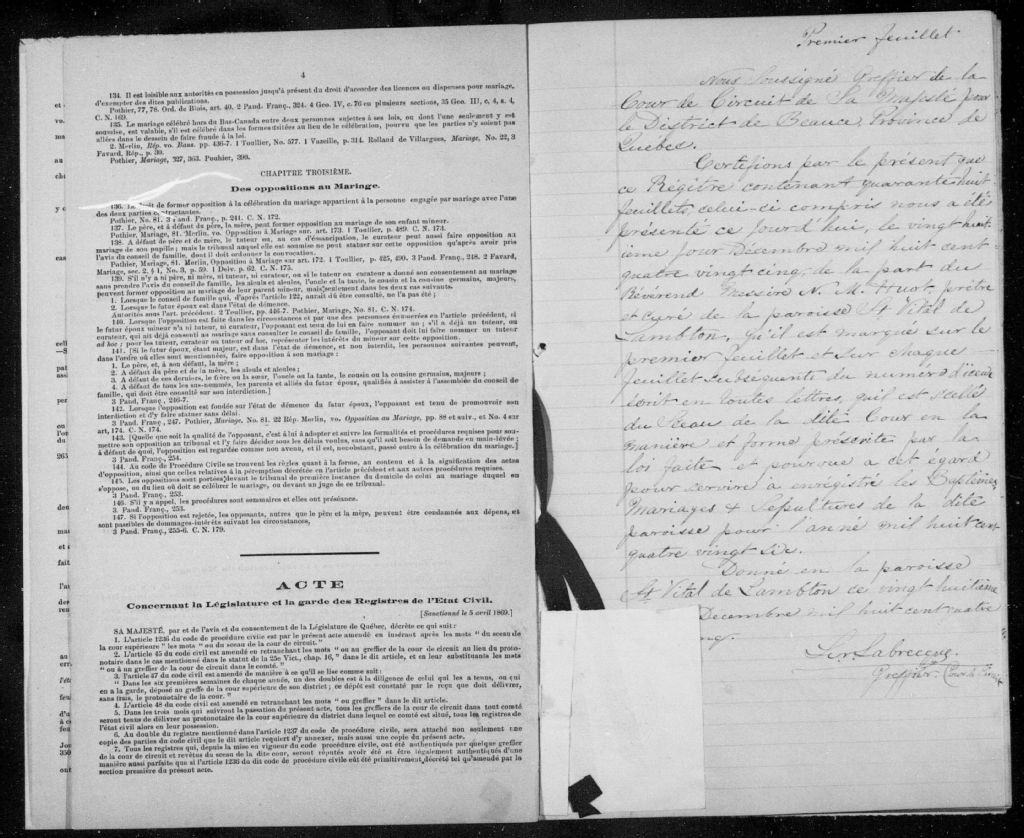 4
134. Il est loisible aux autorités en possession jusqu'à présent du droit d'accorder des licences ou dispenses pour mariage,
d'exempter des dites publications.
Pothier, 77, 78. Ord. de Blois, art. 40. 2 Pand. Franç., 324. 4 Geo. IV, c. 76 en plusieurs sections, 35 Geo. III, c, 4, s. 4,
C. N. 169.
135. Le mariage célébré hors du Bas-Canada entre deux personnes sujettes à ses lois, ou dont l'une seulement y est
soumise, est valable, s'il est célébré dans les formes usitées au lieu de la célébration, pourvu que les parties n'y soient pas
allées dans le dessein de faire fraude à la loi.
2 Merlin, Rép. vo. Bans. pp. 436-7. 1 Toullier, No. 577. 1 Vazeille, p. 314. Rolland de Villargues, Mariage, No. 22, 3
Favard, Rép., p. 39.
Pothier, Mariage, 327, 363. Pouhier, 390.
CHAPITRE TROISIÈME.
Des oppositions au Mariage.
136. Le droit de former opposition à la célébration du mariage appartient à la personne engagée par mariage avec l'une
des deux parties contractantes.
Pothier, No. 81. 3 Pand. Franç., p. 241. C. N. 172.
137. Le père, et à défaut du père, la mère, peut former opposition au mariage de son enfant mineur.
Pothier, Mariage, 81. Merlin, vo. Opposition à Mariage sur art. 173. 1 Toullier, p. 489. C. N. 173.
138. A défaut de père et de mère, le tuteur ou, au cas d'émancipation, le curateur peut aussi faire opposition au
mariage de son pupille; mais le tribunal auquel elle est soumise ne peut statuer sur cette opposition qu'après avoir pris
l'avis du conseil de famille, dont il doit ordonner la convocation.
Pothier, Mariage, 81. Merlin, Opposition à Mariage sur art. 172. 1 Toullier, p. 425, 490. 3 Pand. Franç., 248. 2 Favard,
Mariage, sec. 2. § 1, No. 3, p. 59. 1 Delv. p. 62. C. N. 175.
139. S'il n'y a ni père, ni mère, ni tuteur, ni curateur, ou si le tuteur ou curateur a donné son consentement au mariage
sans prendre l'avis du conseil de famille, les aïeuls et aïeules, l'oncle et la tante, le cousin et la cousine germains, majeurs,
peuvent former opposition au mariage de leur parent mineur, mais seulement dans les deux cas suivants.
1. Lorsque le conseil de famille qui, d'après l'article 122, aurait dû être consulté, ne l'a pas été;
2. Lorsque le futur époux est dans l'état de démence.
Autorités sous l'art. précédent. 2 Toullier, pp. 446-7. Pothier, Mariage, No. 81. C. N. 174.
140. Lorsque l'opposition est faite dans les circonstances et par une des personnes énumérées en l'article précédent, si
le futur époux mineur n'a ni tuteur, ni curateur, l'opposant est tenu de lui en faire nommer un; s'il a déjà un tuteur, ou
curateur, qui ait déjà consenti au mariage sans consulter le conseil de famille, l'opposant doit lui faire nommer un tuteur
ad hoc; pour les tuteur, curateur ou tuteur ad hoc, représenter les intérêts du mineur sur cette opposition.
141. [Si le futur époux, étant majeur, est dans l'état de démence, et non interdit, les personnes suivantes peuvent,
dans l'ordre où elles sont mentionnées, faire opposition à son mariage:
1. Le père, et, à son défaut, la mère;
2. A défaut du père et de la mère, les aïeuls et aïeules;
3. A défaut de ces derniers, le frère ou la sœur, l'oncle ou la tante, le cousin ou la cousine germains, majeurs;
4. A défaut de tous les sus-nommés, les parents et alliés du futur époux, qualifiés à assister à l'assemblée du conseil de
famille, qui doit être consulté sur son interdiction.]
3 Pand. Franç., 246-7.
142. Lorsque l'opposition est fondée sur l'état de démence du futur époux, l'opposant est tenu de promouvoir son
interdiction et d'y faire statuer sans délai.
3 Pand. Franç., 247. Pothier, Mariage, No. 81. 22 Rép. Merlin, vo. Opposition au Mariage, pp. 88 et suiv., et No. 4 sur
art, 174. C. N. 174.
143. [Quelle que soit la qualité de l'opposant, c'est à lui à adopter et suivre les formalités et procédures requises pour sou-
mettre son opposition au tribunal et l'y faire décider sous les délais voulus, sans qu'il soit besoin de demande en main-levée;
à défaut de quoi, l'opposition est regardée comme non avenue, et il est, nonobstant, passé outre à la célébration du mariage.]
3 Pand. Franç., 254.
144. Au code de Procédure Civile se trouvent les règles quant à la forme, au contenu et à la signification des actes
d'opposition, ainsi que celles relatives à la péremption décrétée en l'article précédent et aux autres procédures requises.
145. Les oppositions sont portées devant le tribunal de première instance du domicile de celui au mariage duquel on
s'oppose, ou du lieu où doit se célébrer le mariage, ou devant un juge de ce tribunal.
3 Pand. Franç., 253.
146. S'il y a appel, les procédures sont sommaires et elles ont préséance.
3 Pand. Franç., 253.
147. Si l'opposition est rejetée, les opposants, autres que le père et la mère, peuvent être condamnés aux dépens, et
sont passibles de dommages-intérêts suivant les circonstances,
3 Pand. Franç., 255-6. C. N. 179.
ACTE
Concernant la Législature et la garde des Registres de l'Etat Civil.
[Sanctionné le 5 avril 1869.]
SA MAJESTÉ, par et de l'avis et du consentement de la Législature de Québec, décrète ce qui suit:
1. L'article 1236 du code de procédure civile est par le présent acte amendé en insérant après les mots "du sceau de
la cour supérieure" les mots "ou du sceau de la cour de circuit."
2. L'article 45 du code civil est amendé en retranchant les mots "ou au greffier de la cour de circuit au lieu du proto-
notaire dans le cas mentionné dans le statut de la 25e Vict., chap. 16," dans le dit article, et en leur substituants les mots
"ou à un greffier de la cour de circuit dans le comté."
3. l'article 47 du code civil est amendé de manière à ce qu'il se lise comme suit:
"Dans les six premières semaines de chaque année, un des doubles est à la diligence de celui qui les a tenus, ou qui
en a la garde, déposé au greffe de la cour supérieure de son district; ce dépôt est constaté par le reçu que doit délivrer,
sans frais, le protonotaire de la cour."
4. L'article 48 du code civil est amendé en retranchant les mots "ou greffier" dans le dit article.
5. Dans les trois mois qui suivront la passation du présent acte, tous les greffiers de la cour de circuit dans tout comté
seront tenus de délivrer au protonotaire de la cour supérieure du district dans lequel ce comté est situé, tous les registres de
l'état civil alors en leur possession.
6. Au double du registre mentionné dans l'article 1237 du code de procédure civile, sera attaché non seulement une
copie des parties du code civil que le dit article requiert d'y annexer, mais aussi une copie du présent acte.
7. Tous les registres qui, depuis la mise en vigueur du code procédure civile, ont été authentiqués par quelque greffier
de la cour de circuit et revêtus du sceau de la dite cour, seront réputés avoir été et être légalement authentiqués d'une
manière aussi parfaite que si l'article 1236 du dit code de procédure civile eût été primitivement décrété tel qu'amendé par la
section première du présent acte.
Premier feuillet.
Nous Soussigné Greffier de la
Cour de Circuit de Sa Majesté pour
le District de Beauce, Province de
Quebec.
Certifions par le présent que
ce Régître contenant quarante huit
feuillets, celui-ci compris nous a été
présenté ce jourd'hui, le vingt huit-
ième jour Décembre mil huit cent
quatre vingt cinq, de la part du
Révérend Messire N. M. Huot, prêtre
et Curé de la paroisse St Vital de
Lambton, qu'il est marqué sur le
premier feuillet et sur chaque
feuillet subséquents du numero d'iceux
écrit en toutes lettres, qu'il est scellé
du Sceau de la dite Cour en la
manière et forme préscrite par la
loi faite et pourvue a cet égard
pour servire à enregistré les Baptêmes
Mariages & Sepultures de la dite
paroisse pour l'anné mil huit cent
quatre vingt six.
Donné en la paroisse
St Vital de Lambton ce vingt huitième
Décembre mil huit cent quatre
Labrecque
Greffier